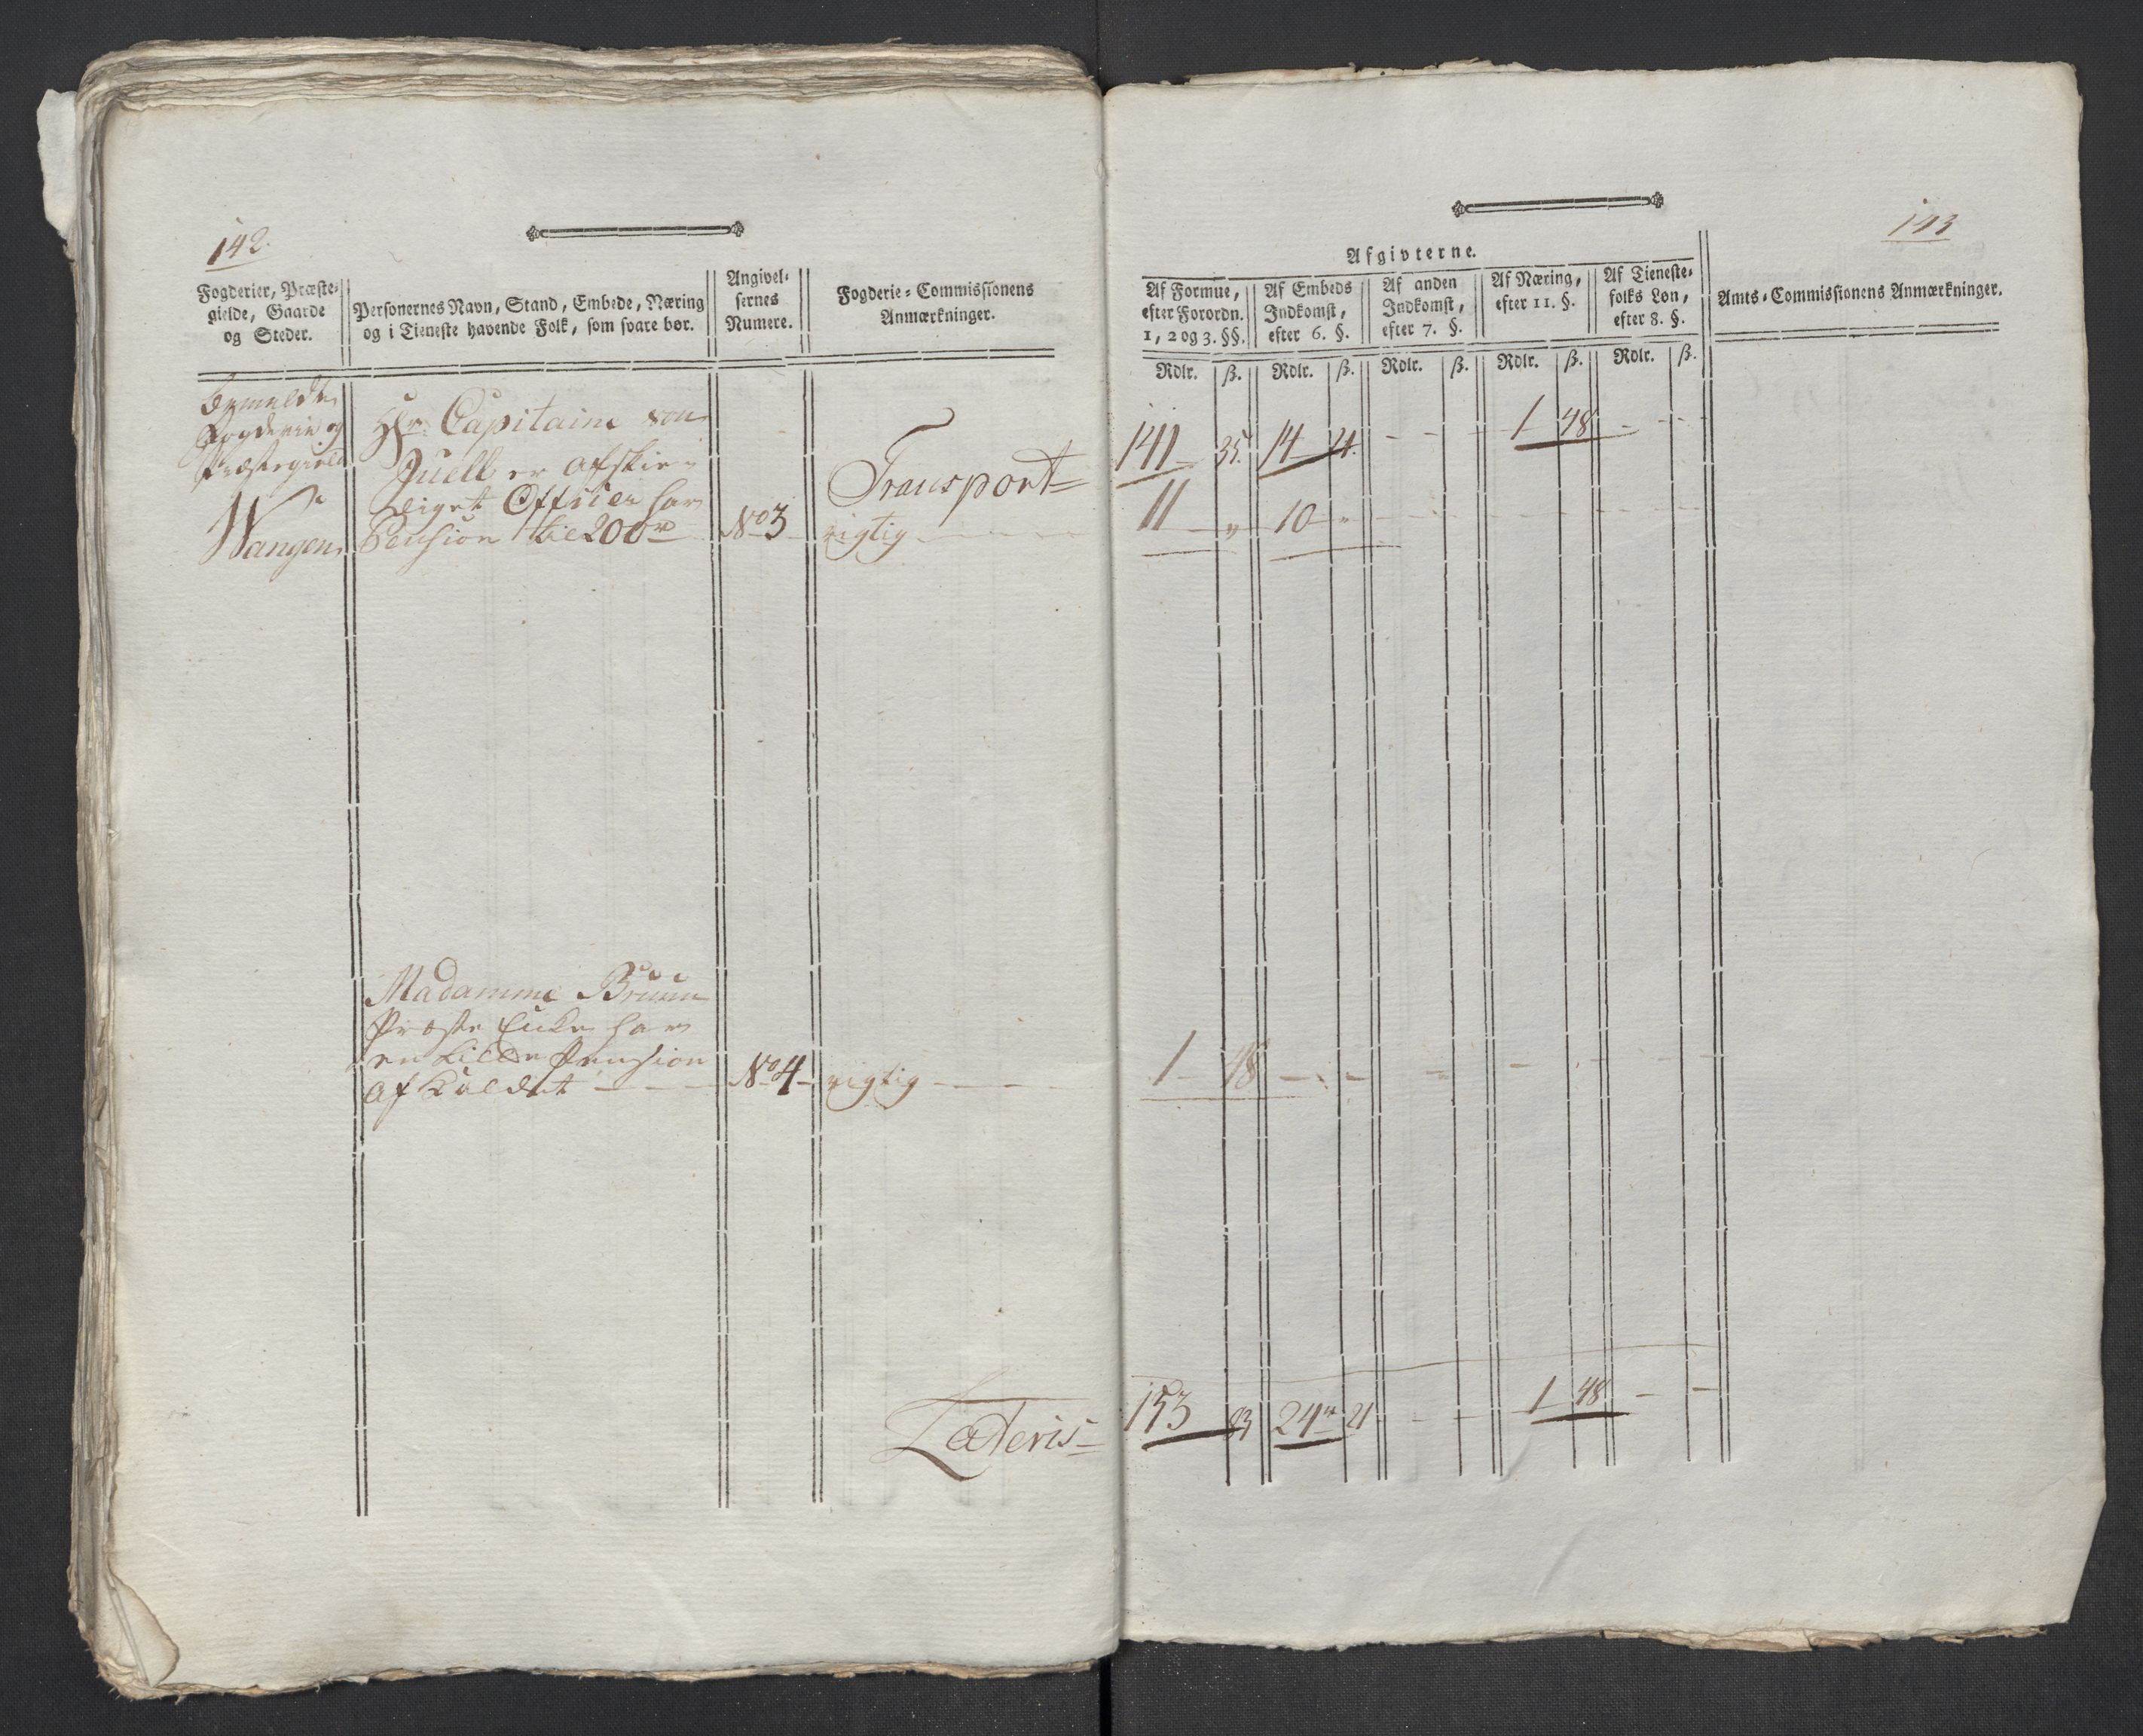 142.
Fogderier, Præste-
gielde, Gaarde
og Steder.
Personernes Navn, Stand, Embede, Næring
og i Tieneste havende Folk, som svare bør.
Angivel-
sernes
Numere.
Fogderie-Commissionens
Anmærkninger.
Bemeldte
Fogderie og
Præstegield
Wangen
Hr. Capitaine von
Juell er afskee-
diget Officier har
Pension til 200 rd
No 3
Transport
rigtig
Madamme Bruun
Præste Enke har
en liden Pension
af Kaldet
No 4
rigtig
Lateris
143
Afgivterne.
Af Formue,
efter Forordn.
1, 2 og 3. §§.
Af Embeds
Indkomst,
efter 6. §.
Af anden
Indkomst,
efter 7. §.
Af Næring,
efter 11. §.
Af Tieneste-
folks Løn,
efter 8. §.
Amts-Commissionens Anmærkninger.
Rdlr. ß. Rdlr. ß. Rdlr. ß. Rdlr. ß. Rdlr. ß.
141 35. 14 21. - - 1 48 - -
11 " 10 "
1 48 - - - -
153 83 24 21 - - 1 48 - -